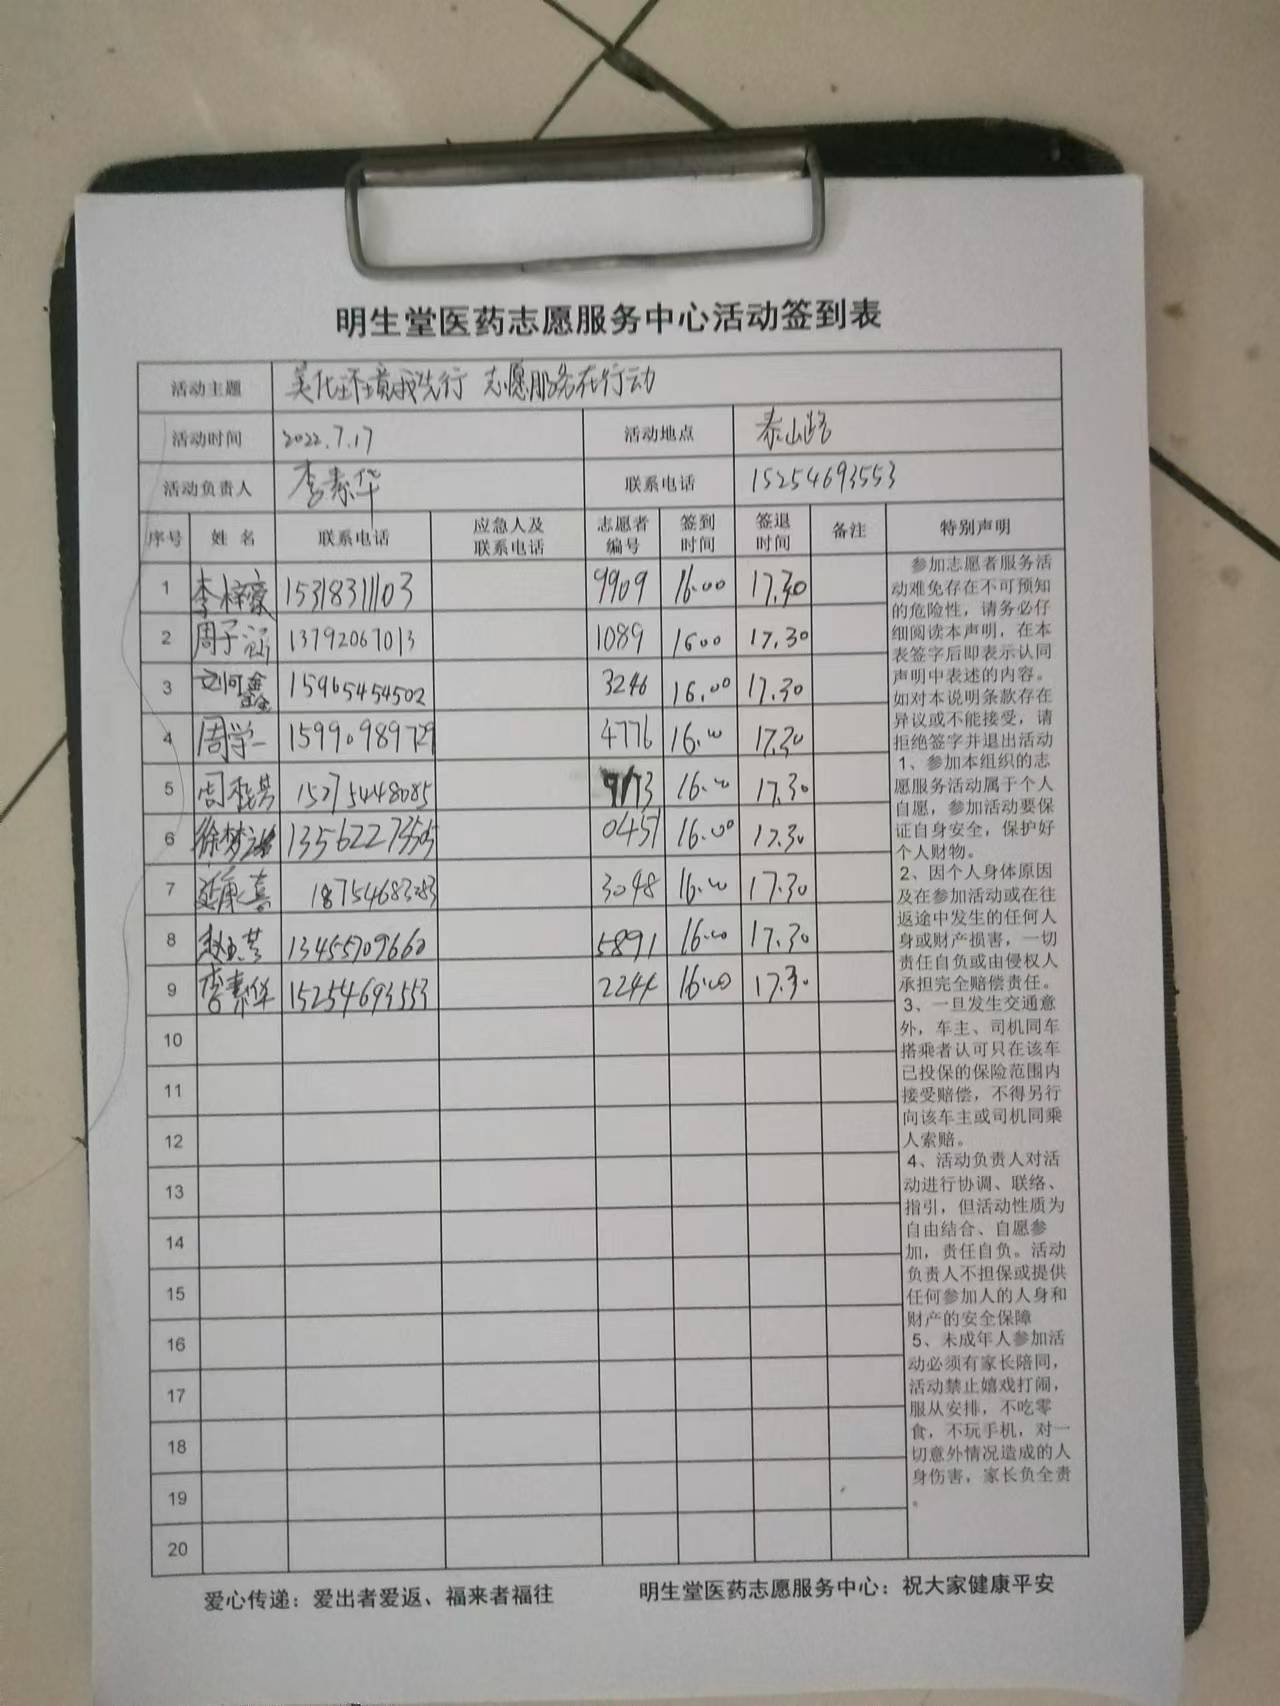 明生堂医药志愿服务中心活动签到表
活动主题 美化环境我先行 志愿服务在行动
活动时间 2022.7.17 活动地点 泰山路
活动负责人 李素华 联系电话 15254693553
序号 姓名 联系电话 应急人及联系电话 志愿者编号 签到时间 签退时间 备注 特别声明
1 李梓豪 15318311103 9909 16.00 17.30
2 周子涵 13792067013 1089 1600 17.30
3 刘何鑫 15965454502 3246 16.00 17.30
4 周学一 15990989729 4776 16.00 17.30
5 周 15275448085 9173 16.00 17.30
6 徐梦 0451 16.00 17.30
7 康嘉 18754683083 3048 16.00 17.30
8 赵 13455709660 5891 16.00 17.30
9 李素华 15254693553 2244 16.00 17.30
10
11
12
13
14
15
16
17
18
19
20
参加志愿者服务活
动难免存在不可预知
的危险性，请务必仔
细阅读本声明，在本
表签字后即表示认同
声明中表述的内容。
如对本说明条款存在
异议或不能接受，请
拒绝签字并退出活动
1、参加本组织的志
愿服务活动属于个人
自愿，参加活动要保
证自身安全，保护好
个人财物。
2、因个人身体原因
及在参加活动或在往
返途中发生的任何人
身或财产损害，一切
责任自负或由侵权人
承担完全赔偿责任。
3、一旦发生交通意
外，车主、司机同车
搭乘者认可只在该车
已投保的保险范围内
接受赔偿，不得另行
向该车主或司机同乘
人索赔。
4、活动负责人对活
动进行协调、联络、
指引，但活动性质为
自由结合、自愿参
加，责任自负。活动
负责人不担保或提供
任何参加人的人身和
财产的安全保障
5、未成年人参加活
动必须有家长陪同，
活动禁止嬉戏打闹，
服从安排，不吃零
食，不玩手机，对一
切意外情况造成的人
身伤害，家长负全责
。
爱心传递：爱出者爱返、福来者福往 明生堂医药志愿服务中心：祝大家健康平安